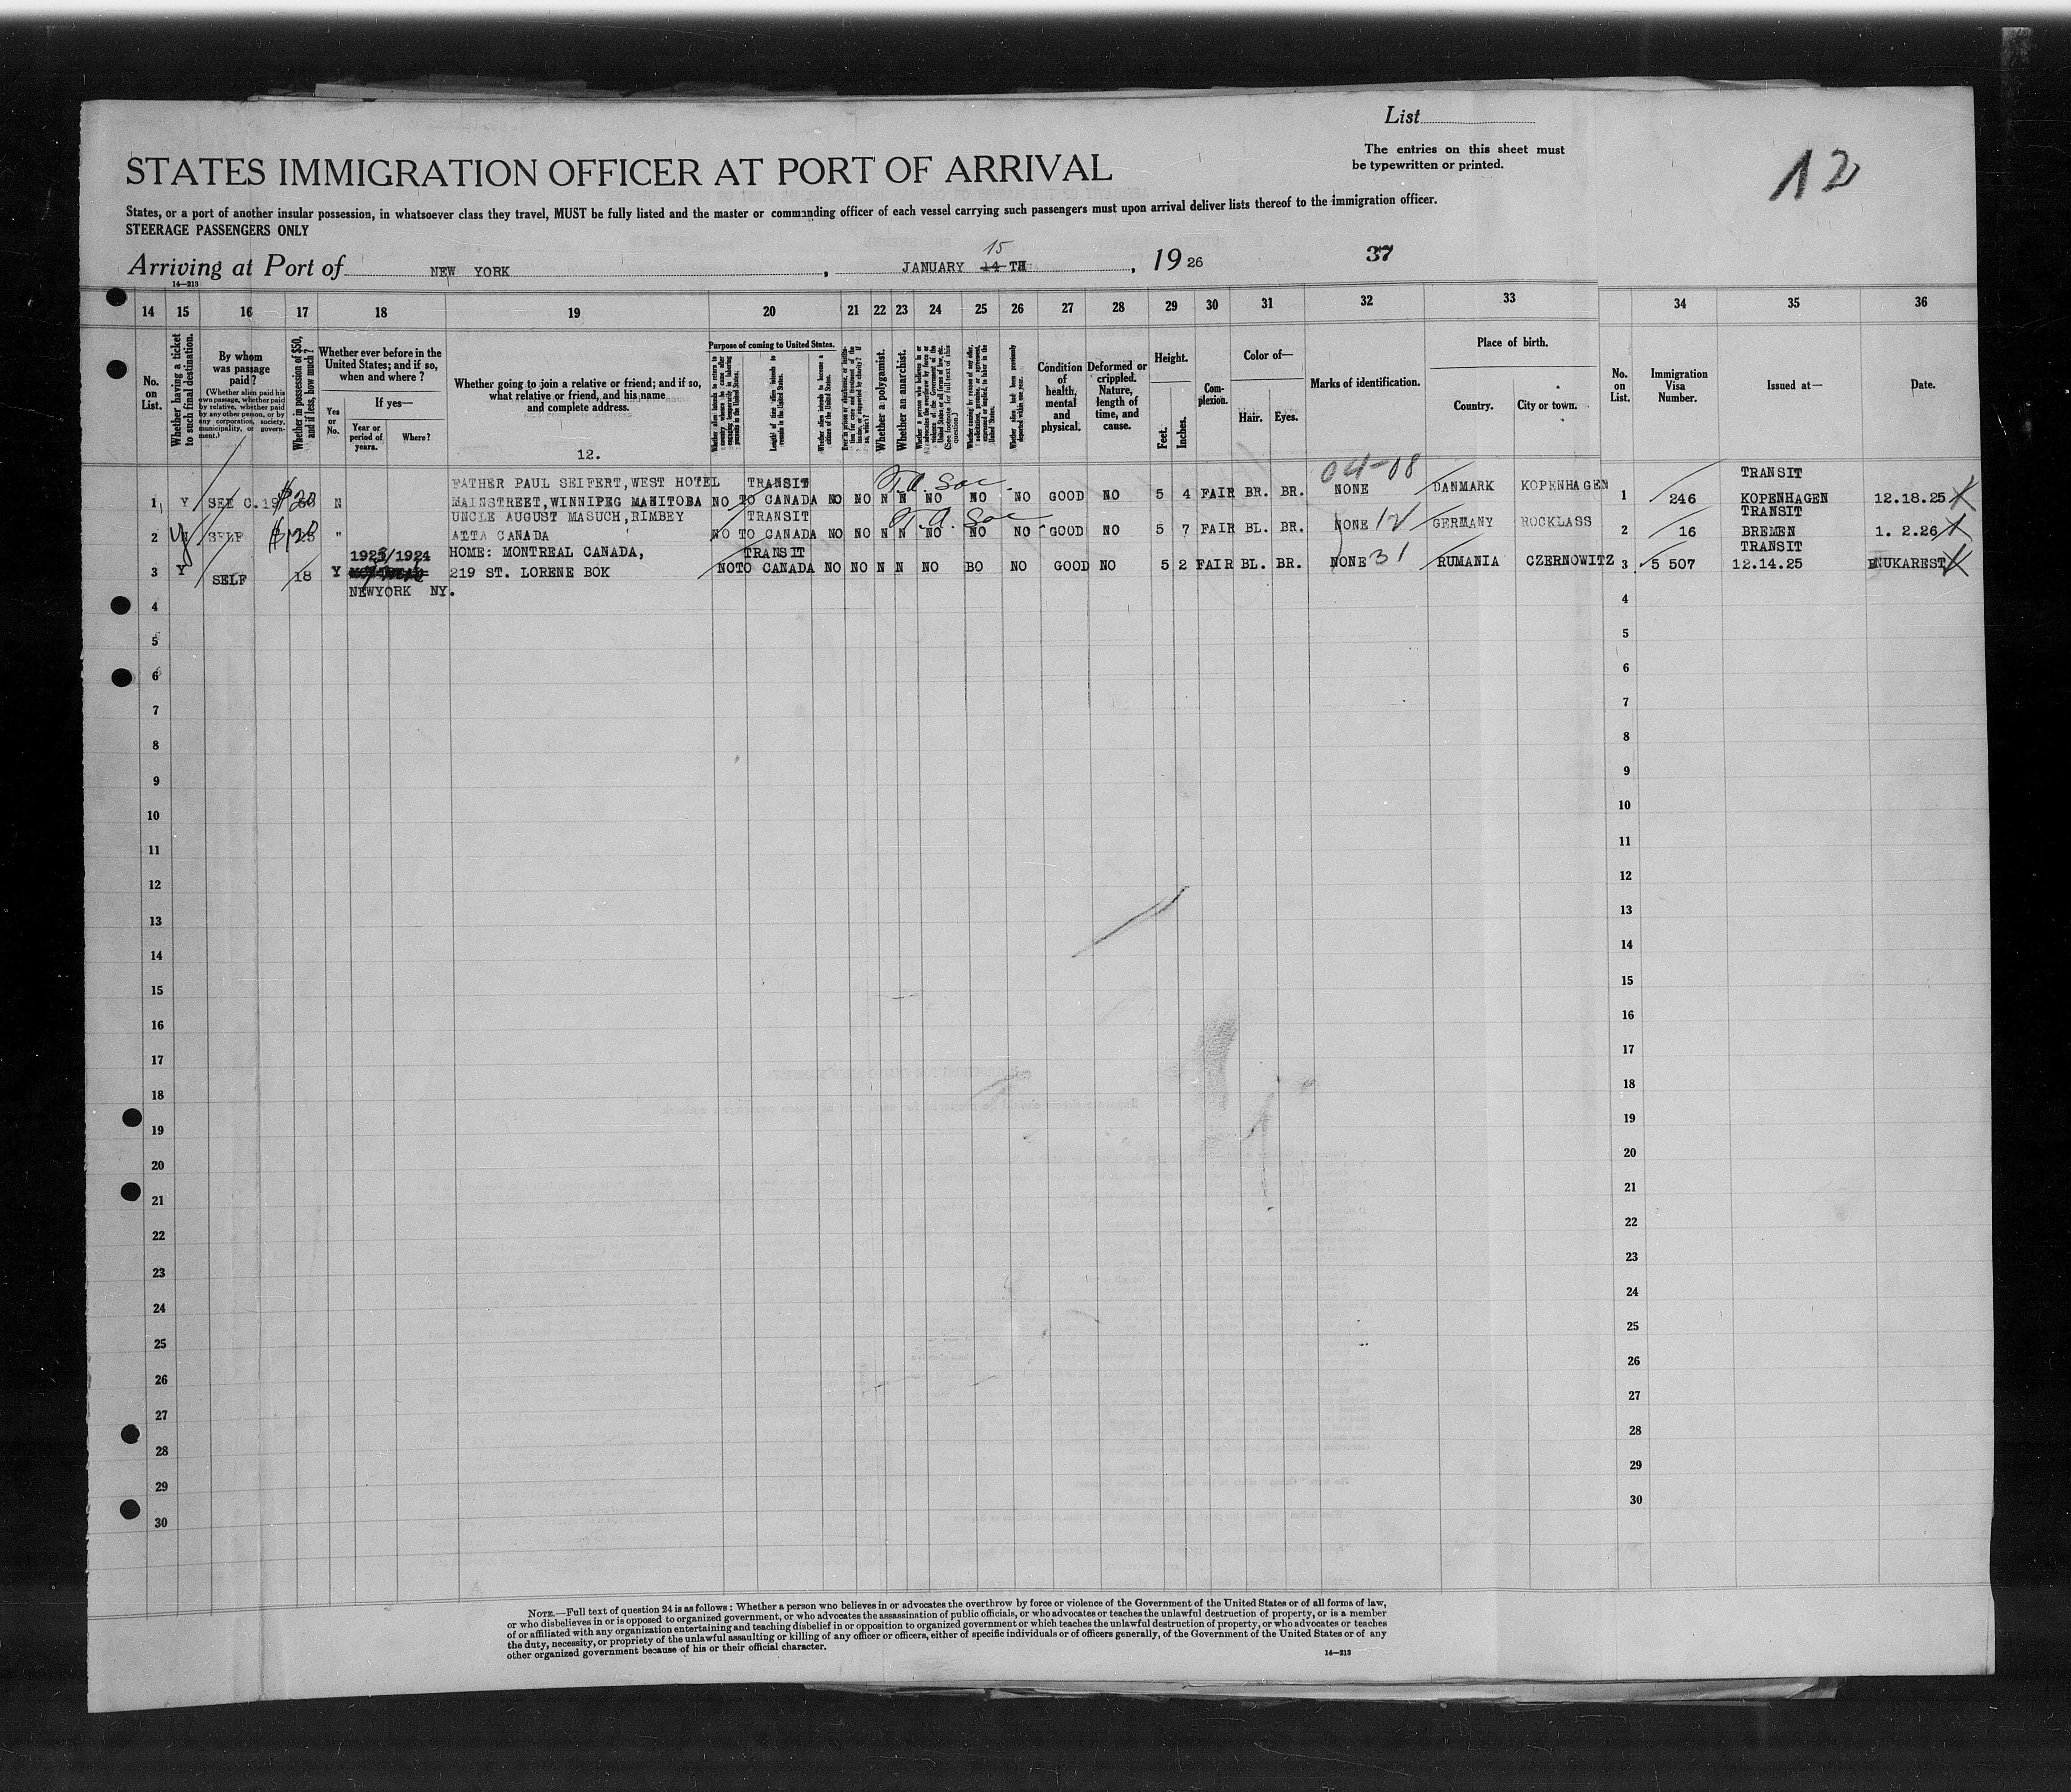 List
The entries on this sheet must
be typewritten or printed.
12
STATES IMMIGRATION OFFICER AT PORT OF ARRIVAL
States, or a port of another insular possession, in whatsoever class they travel, MUST be fully listed and the master or commanding officer of each vessel carrying such passengers must upon arrival deliver lists thereof to the immigration officer.
STEERAGE PASSENGERS ONLY
15
Arriving at Port of NEW YORK, JANUARY 14 TH, 19 26
37
14—213
14 15 16 17 18 19 20 21 22 23 24 25 26 27 28 29 30 31 32 33 34 35 36
No. on List.
Whether having a ticket to such final destination.
By whom was passage paid?
(Whether alien paid his own passage, whether paid by relative, whether paid by any other person, or by any corporation, society, municipality, or government.)
Whether in possession of $50, and if less, how much?
Whether ever before in the United States; and if so, when and where?
Yes or No.
If yes—
Year or period of years.
Where?
Whether going to join a relative or friend; and if so, what relative or friend, and his name and complete address.
12.
Purpose of coming to United States.
Whether alien intends to return to country whence he came after engaging temporarily in laboring pursuits in the United States.
Length of time alien intends to remain in the United States.
Whether alien intends to become a citizen of the United States.
Whether a polygamist.
Whether an anarchist.
Whether alien had been previously deported within one year.
Condition of health, mental and physical.
Deformed or crippled. Nature, length of time, and cause.
Height.
Feet.
Inches.
Complexion.
Color of—
Hair.
Eyes.
Marks of identification.
Place of birth.
Country.
City or town.
No. on List.
Immigration Visa Number.
Issued at—
Date.
04-08
FATHER PAUL SEIFERT, WEST HOTEL TRANSIT TRANSIT
1 Y SEE C.19 $20 N MAINSTREET, WINNIPEG MANITOBA NO TO CANADA NO NO N N NO NO NO GOOD NO 5 4 FAIR BR. BR. NONE DANMARK KOPENHAGEN 1 246 KOPENHAGEN 12.18.25
UNCLE AUGUST MASUCH, RIMBEY TRANSIT TRANSIT
2 SELF " ATTA CANADA NO TO CANADA NO NO N N NO NO NO GOOD NO 5 7 FAIR BL. BR. NONE GERMANY ROCKLASS 2 16 BREMEN 1. 2.26
1923/1924 HOME: MONTREAL CANADA, TRANSIT TRANSIT
3 Y SELF 18 Y 219 ST. LORENE BOK NOTO CANADA NO NO N N NO BO NO GOOD NO 5 2 FAIR BL. BR. NONE 31 RUMANIA CZERNOWITZ 3 5 507 12.14.25
NEWYORK NY.
4 4
5 5
6 6
7 7
8 8
9 9
10 10
11 11
12 12
13 13
14 14
15 15
16 16
17 17
18 18
19 19
20 20
21 21
22 22
23 23
24 24
25 25
26 26
27 27
28 28
29 29
30 30
NOTE.—Full text of question 24 is as follows: Whether a person who believes in or advocates the overthrow by force or violence of the Government of the United States or of all forms of law,
or who disbelieves in or is opposed to organized government, or who advocates the assassination of public officials, or who advocates or teaches the unlawful destruction of property, or is a member
of or affiliated with any organization entertaining and teaching disbelief in or opposition to organized government or which teaches the unlawful destruction of property, or who advocates or teaches
the duty, necessity, or propriety of the unlawful assaulting or killing of any officer or officers, either of specific individuals or of officers generally, of the Government of the United States or of any
other organized government because of his or their official character.
14—213